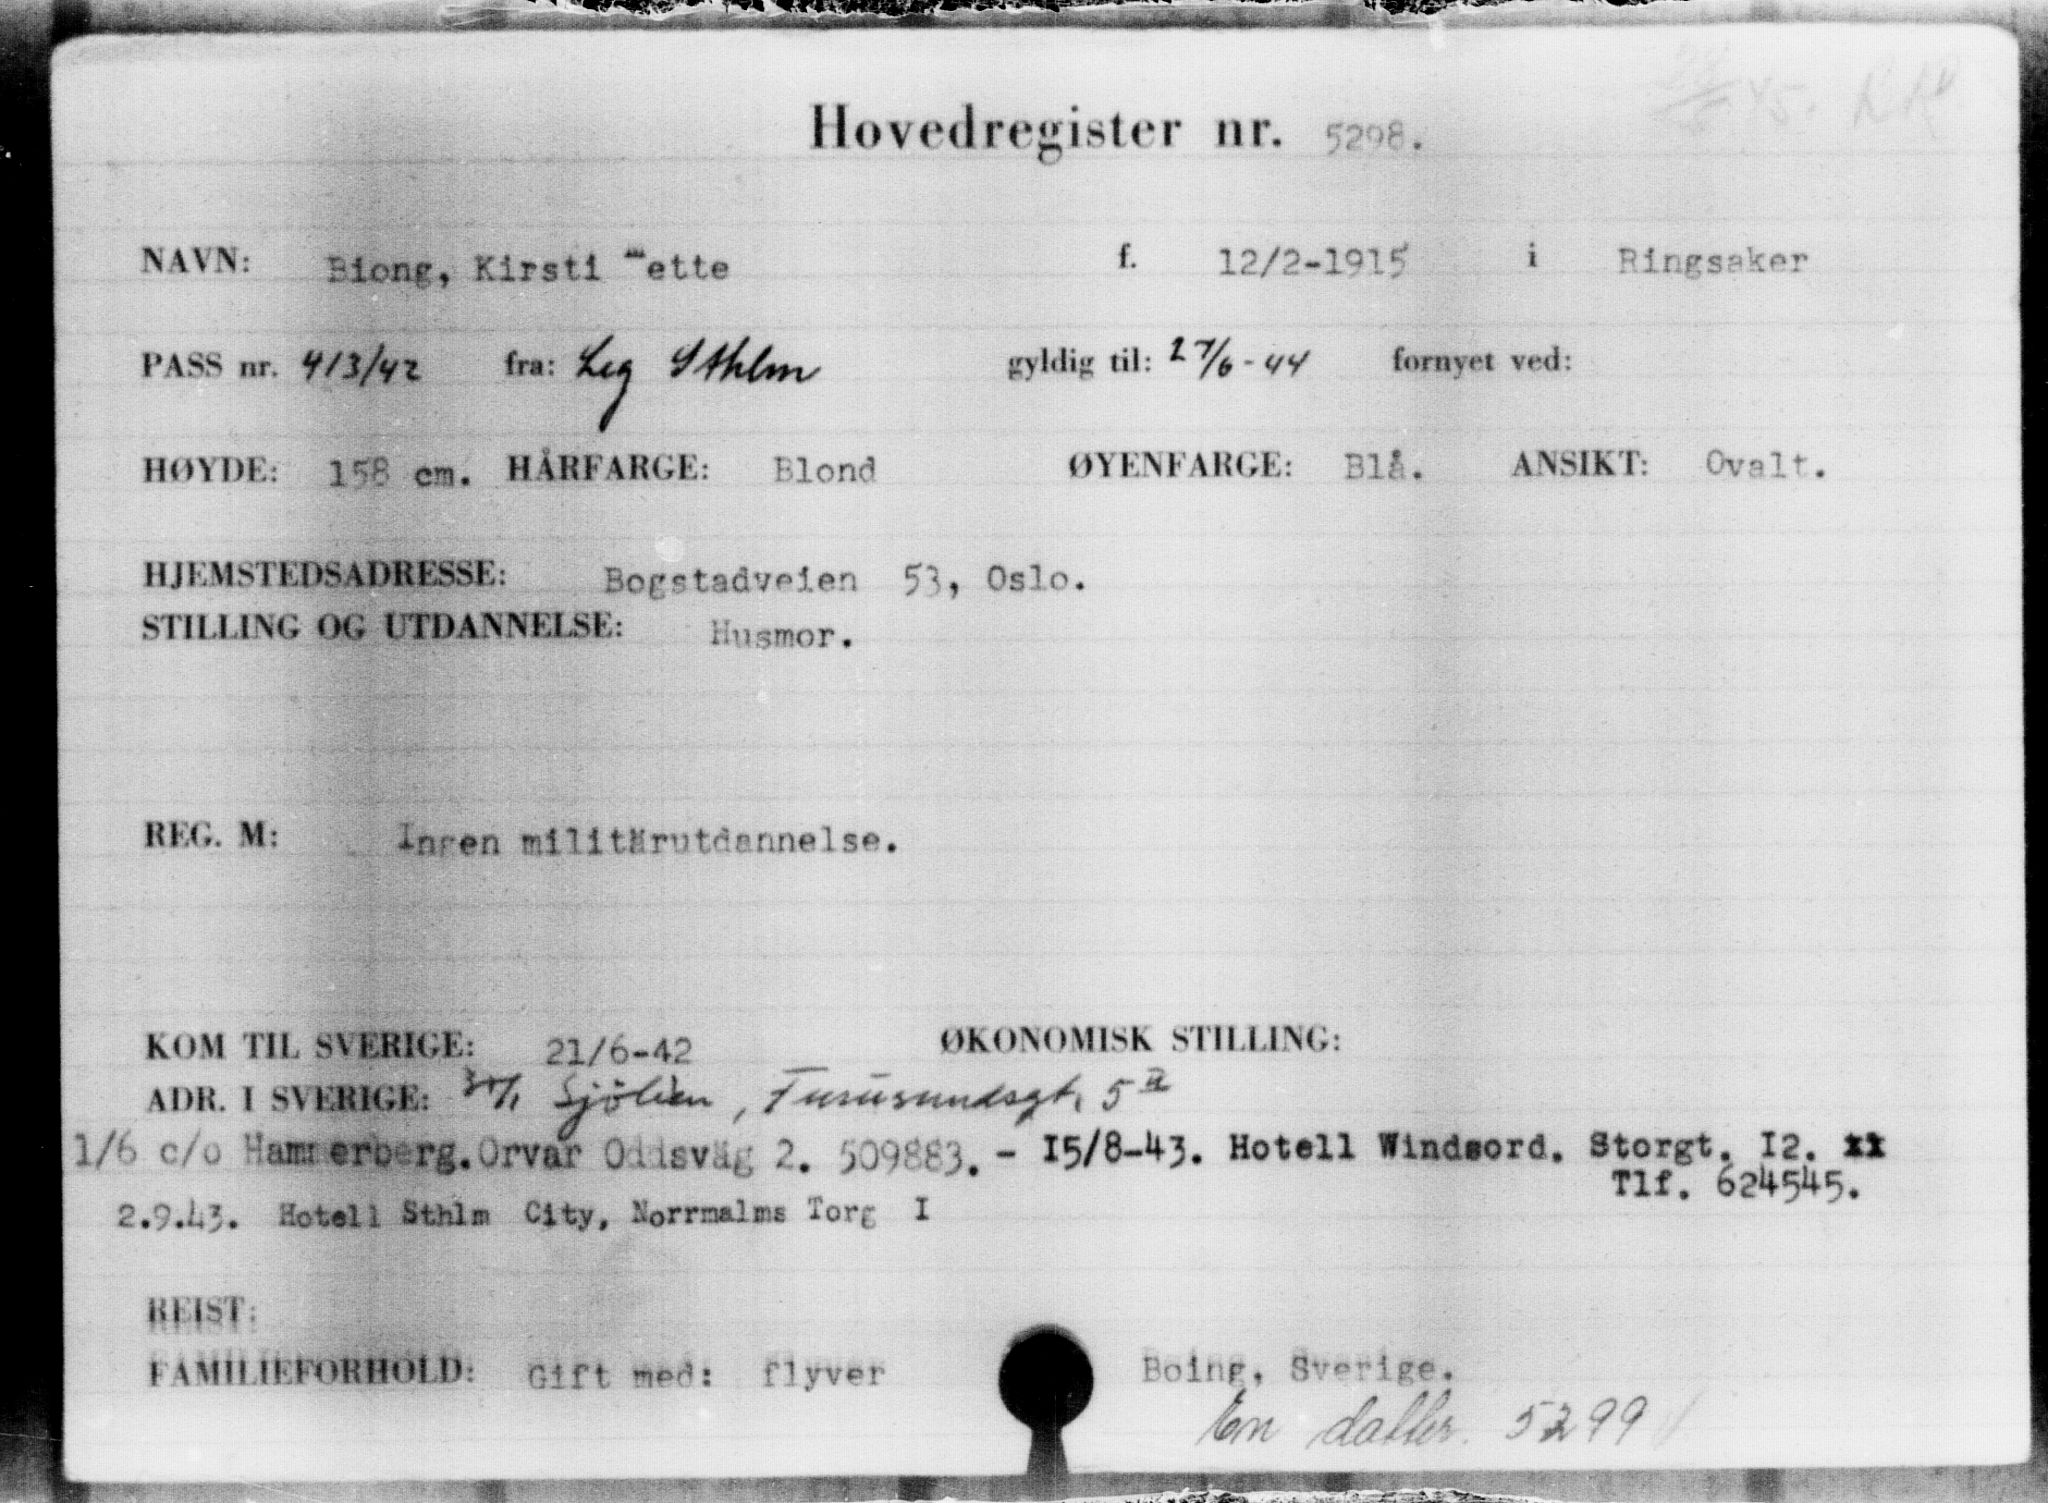 45.
Hovedregister nr. 5298.
NAVN: Biong, Kirsti Mette f. 12/2-1915 i Ringsaker
PASS nr. 413/42 fra: Leg Sthlm gyldig til: 27/6-44 fornyet ved:
HØYDE: 158 cm. HÅRFARGE: Blond ØYENFARGE: Blå. ANSIKT: Ovalt.
HJEMSTEDSADRESSE: Bogstadveien 53, Oslo.
STILLING OG UTDANNELSE: Husmor.
REG. M: Ingen militärutdannelse.
KOM TIL SVERIGE: 21/6-42 ØKONOMISK STILLING:
ADR. I SVERIGE: Sjölien, Furusundsgt. 5 II
1/6 c/o Hammerberg. Orvar Oddsväg 2. 509883. - I5/8-43. Hotell Windsord. Storgt. I2. xx
Tlf. 624545.
2.9.43. Hotell Sthlm City, Norrmalms Torg I
REIST:
FAMILIEFORHOLD: Gift med: flyver Boing, Sverige.
En datter. 5299